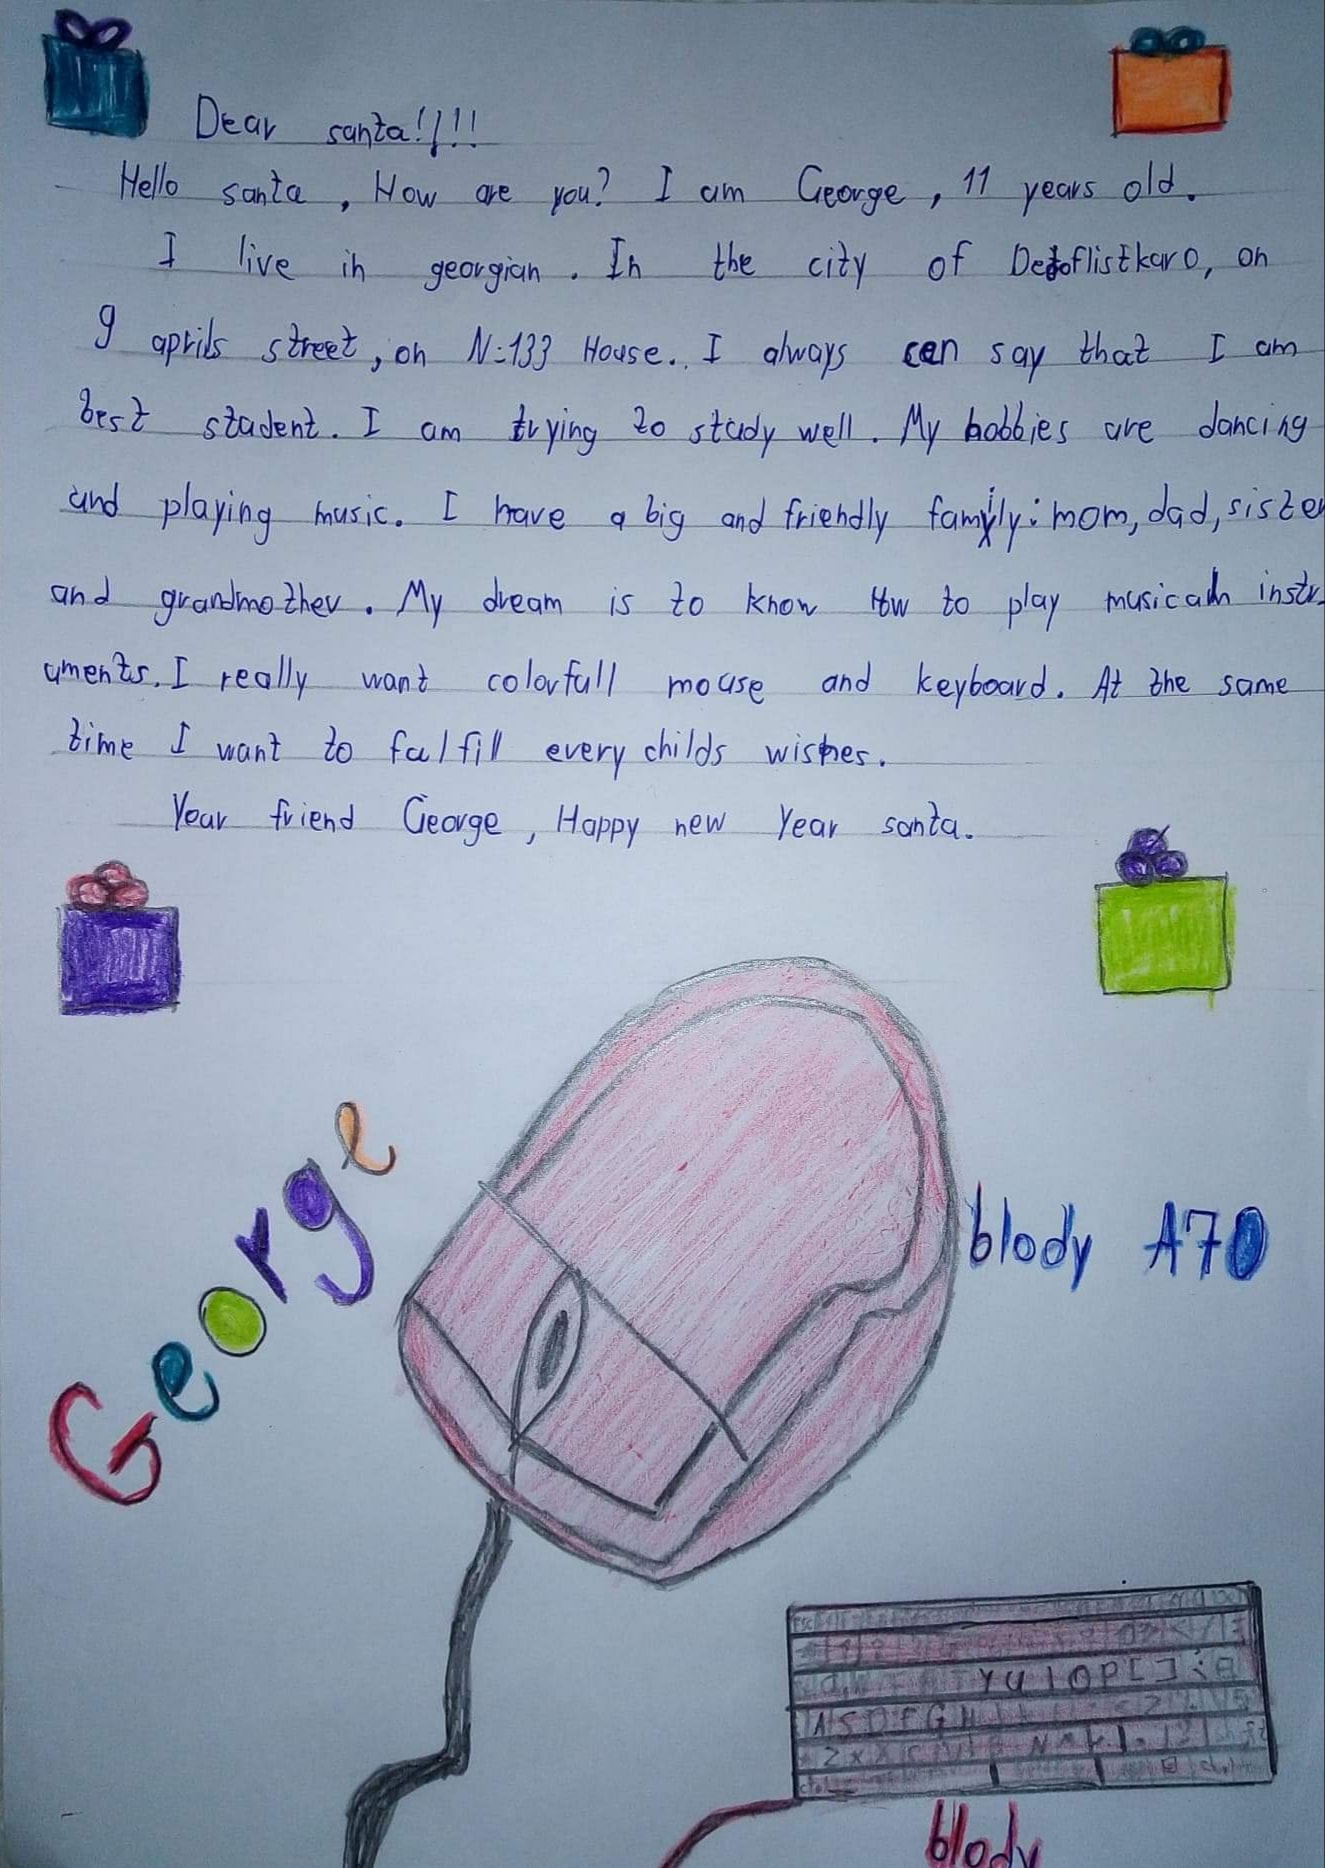 Dear santa!!!!!
Hello santa, How are you? I am George, 11 years old.
I live in georgian. In the city of Dedoflistkaro, on
9 aprils street, on N:133 House. I always can say that I am
best student. I am trying to study well. My hobbies are dancing
and playing music. I have a big and friendly family: mom, dad, sister
and grandmother. My dream is to know How to play musicaln instr
uments. I really want colorfull mouse and keyboard. At the same
time I want to fulfill every childs wishes.
Your friend George, Happy new Year santa.
George
blody A70
YUIOP[]
ASDFGH
blody